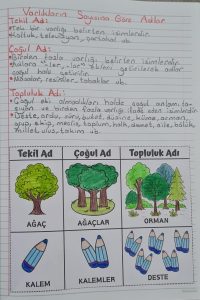 Varlıkların Sayısına Göre Adlar
Tekil Ad:
Tek bir varlığı belirten isimlerdir.
Koltuk, televizyon, portakal vb.
Çoğul Ad:
Birden fazla varlığı belirten isimlerdir.
"-ler, -lar" ekleri getirilerek adlar
çoğul hale getirilir.
Masalar, resimler, tabaklar vb.
Topluluk Adı:
Çoğul eki almadıkları halde çoğul anlamı ta-
şıyan ve birden fazla varlığı ifade eden isimlerdir.
Deste, ordu, sürü, buket, düzine, küme, orman,
grup, ekip, meclis, toplum, halk, demet, aile, bölük,
millet, ulus, takım vb.
Tekil Ad Çoğul Ad Topluluk Adı
AĞAÇ AĞAÇLAR ORMAN
KALEM KALEMLER DESTE